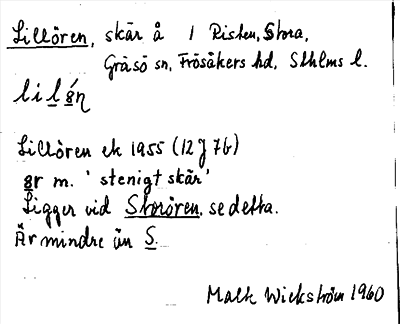 Lillören, skär å 1 Risten, Stora,
Gräsö sn, Frösåkers hd, Sthlms l.
Lillören ek 1955 (12 J 7b)
gr m. 'stenigt skär'
Ligger vid Storören, se detta.
Är mindre än S.
Malte Wickström 1960